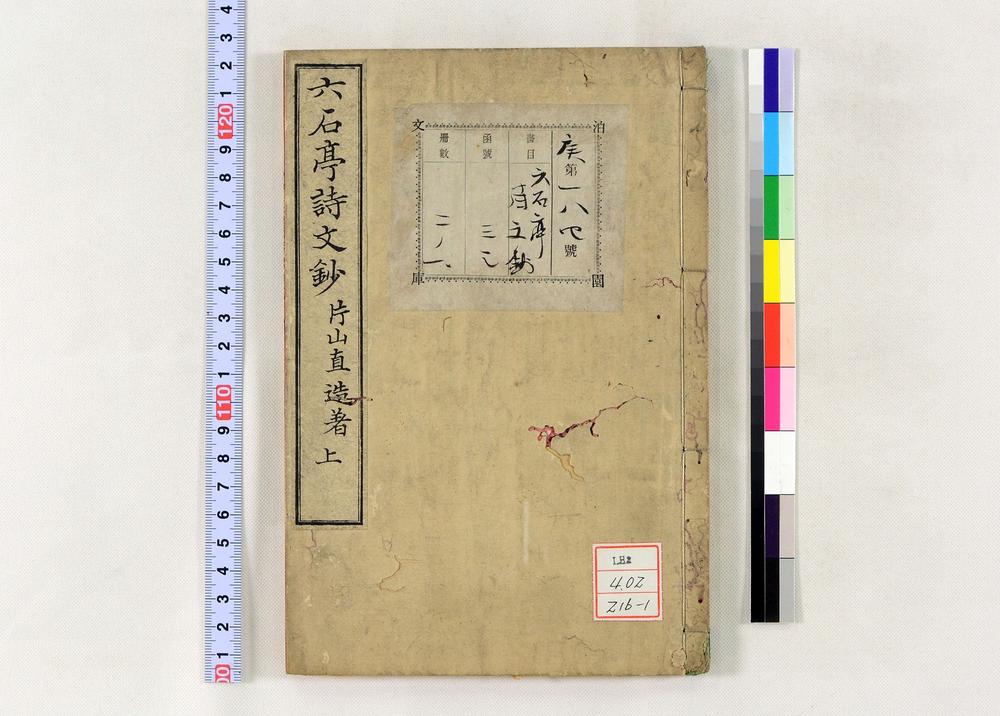 六石亭詩文鈔
片山直造著
上
泊園文庫
第一八七號
書目
六石亭
詩文鈔
函號
冊數
二ノ一
LH2
4.02
216-1
4
3
2
1
120
9
8
7
6
5
4
3
2
1
110
9
8
7
6
5
4
3
2
1